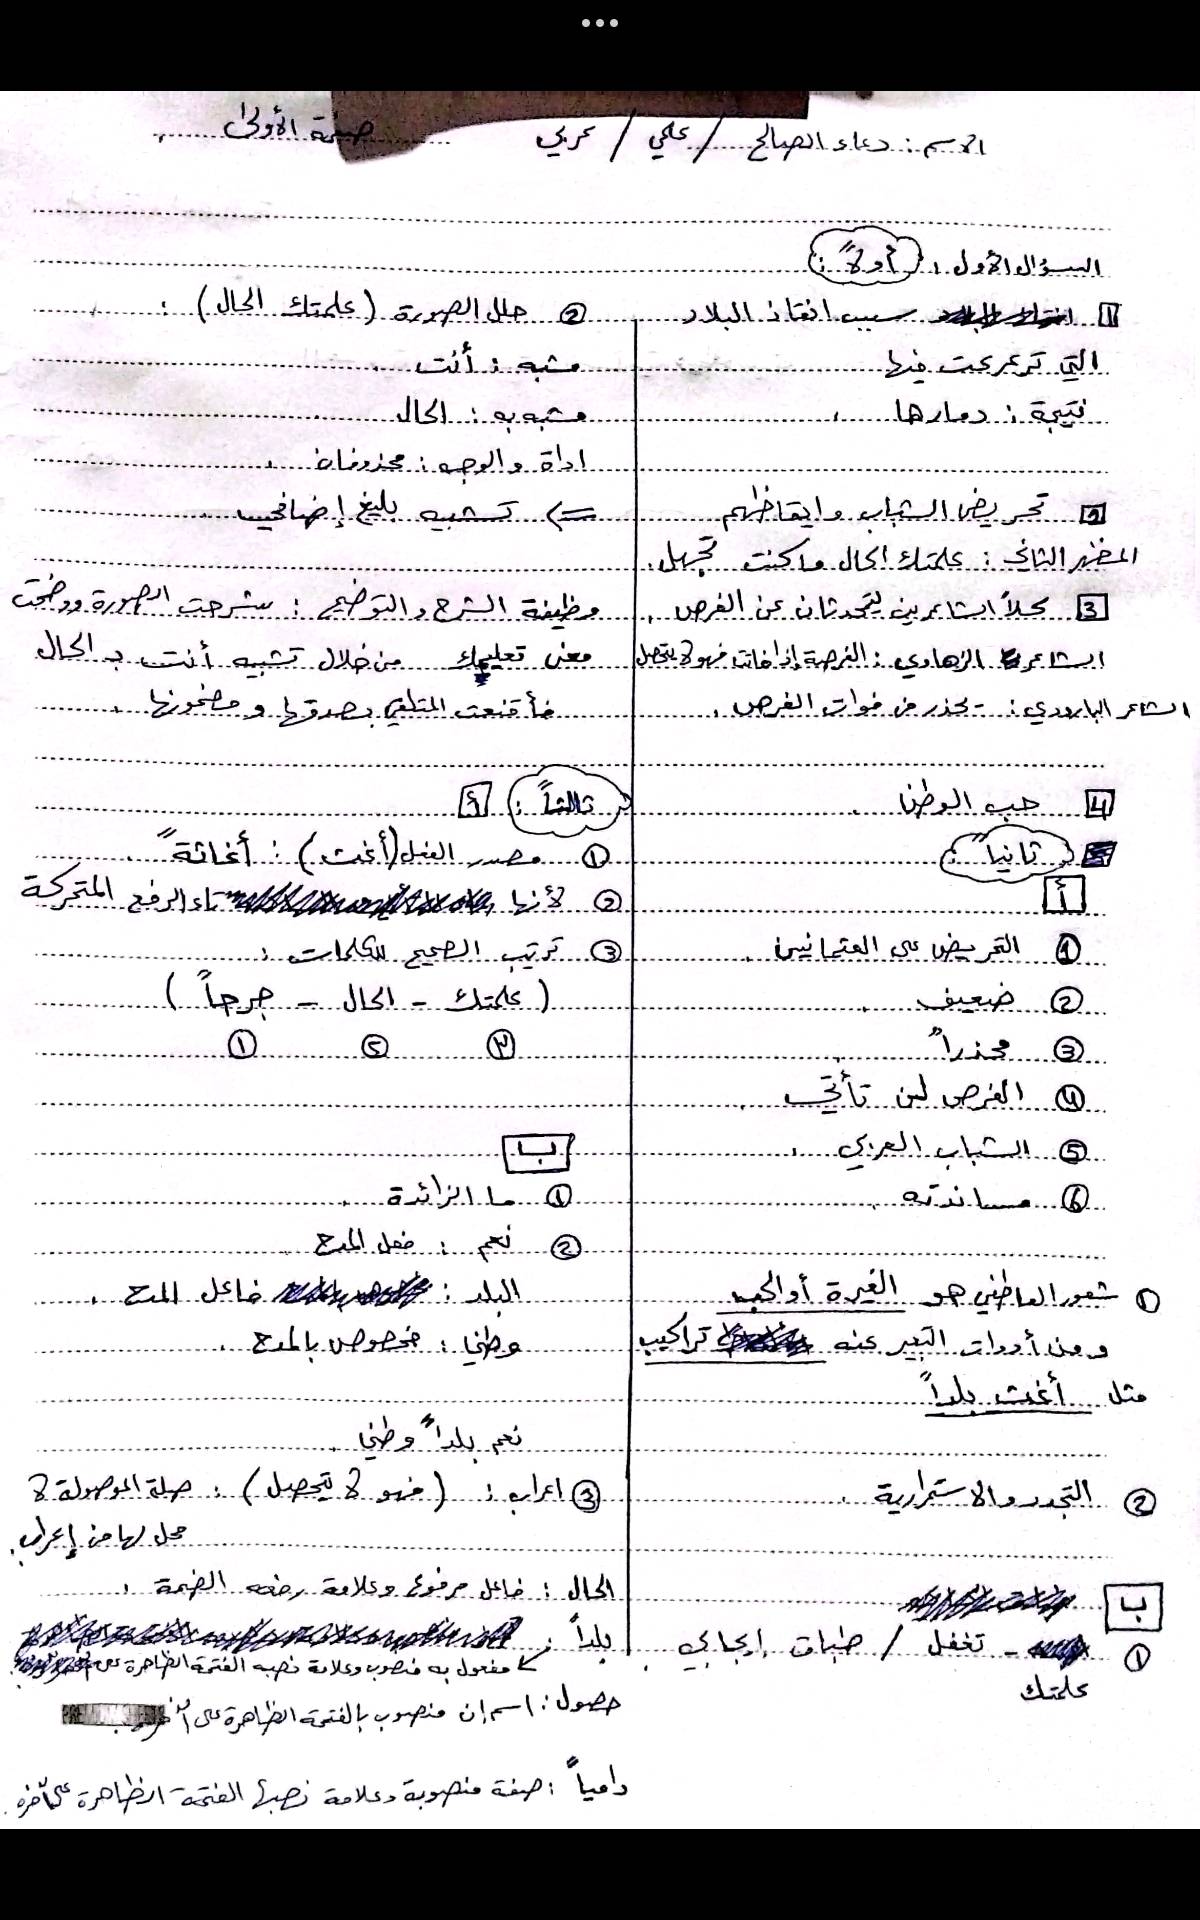 الاسم: دعاء الصالح / علمي / عربي صفحة الأولى
السؤال الأول: أولاً:
1 سبب انقاذ البلاد
التي ترعرعت فيها
نتيجة: دمارها
2 تحريض الشباب وايقاظهم
المظهر الثاني: علمتك الحال ما كنت تجهل.
3 كلاً الشاعرين يتحدثان عن الفرص.
الشاعر الزهاوي: الفرصة إذا فاتت فهو لا يتحصل
الشاعر البارودي: يحذر من فوات الفرص.
4 حب الوطن
ثانياً:
أ
1 التحريض على العثمانيين
2 ضعيف
3 محذراً
4 الفرص لن تأتي
5 الشباب العربي.
6 مساندته
1 شعور العاطفي هو الغيرة أو الحب
و من أدوات التعبير عنه تراكيب
مثل أغث بلداً
2 التجدد والاستمرارية
ب
1 - تغفل / طباق إيجابي
علمتك
2 حلل الصورة (علمتك الحال):
مشبه: أنت
مشبه به: الحال
اداة والوجه: محذوفان
=> تشبيه بليغ إضافي
وظيفة الشرح والتوضيح: شرحت الصورة ووضحت
معنى تعليمك من خلال تشبيه أنت بـ الحال
فأقنعت المتلقي بصدقها و مضمونها
ثالثاً: أ
1 مصدر الفعل (أغث): أغاثةً
2 لأنها تاء الرفع المتحركة
3 ترتيب الصحيح للكلمات:
(علمتك - الحال - جرحاً)
٣ 2 1
ب
1 ما الزائدة
2 نعم: فعل المدح
البلد: فاعل المدح.
وطني: مخصوص بالمدح.
نعم بلداً وطني
3 اعراب: (فهو لا يتحصل): صلة الموصولة لا
محل لها من إعراب.
الحال: فاعل مرفوع وعلامة رفعه الضمة.
بلداً:
مفعول به منصوب وعلامة نصبه الفتحة الظاهرة على
حصول: اسم إن منصوب بالفتحة الظاهرة على آخره
دامياً: صفة منصوبة وعلامة نصبها الفتحة الظاهرة على آخره.